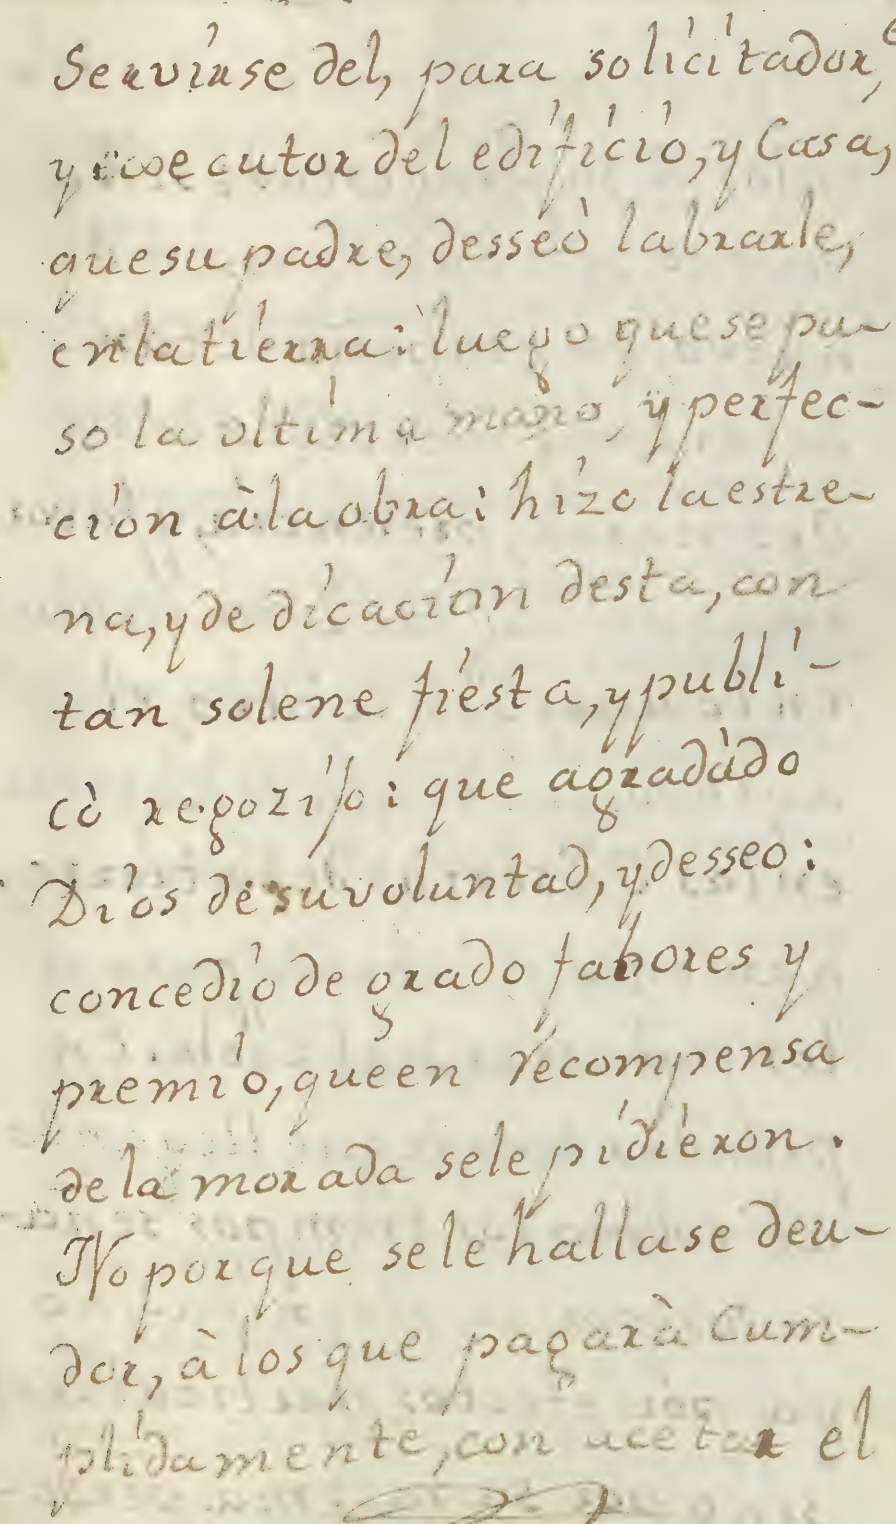 Servirse del, para solicitador,
y executor del edificio, y Casa,
que su padre, desseò labrarle,
en la tierra: luego que se pu-
so la ultima mano, y perfec-
cion à la obra: hizo la estre-
na, y dedicacion desta, con
tan solene fiesta, y publi-
cò regozijo: que agradàdo
Dios de su voluntad, y desseo:
concedio de grado fabores y
premio, que en recompensa
de la morada se le pidieron.
No porque se le hallase deu-
dor, à los que pagarà Cum-
plidamente, con acetar el